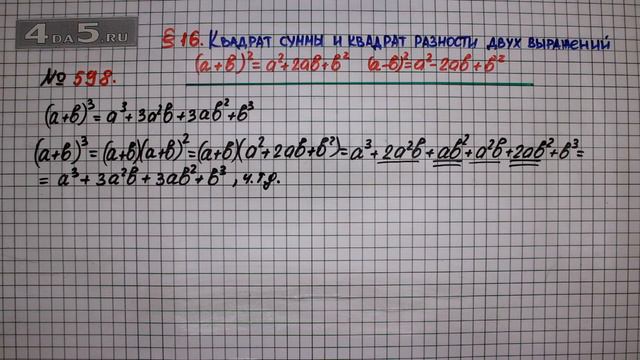 4DA5.RU
§ 16. Квадрат суммы и квадрат разности двух выражений
(a+b)² = a²+2ab+b² (a-b)²=a²-2ab+b²
№ 598.
(a+b)³ = a³+3a²b+3ab²+b³
(a+b)³ = (a+b)(a+b)² = (a+b)(a²+2ab+b²) = a³+2a²b+ab²+a²b+2ab²+b³ =
= a³+3a²b+3ab²+b³, ч.т.д.